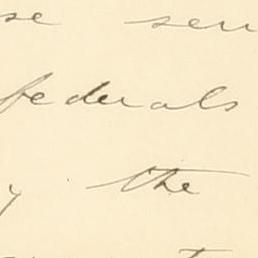 se sen
federals
y the